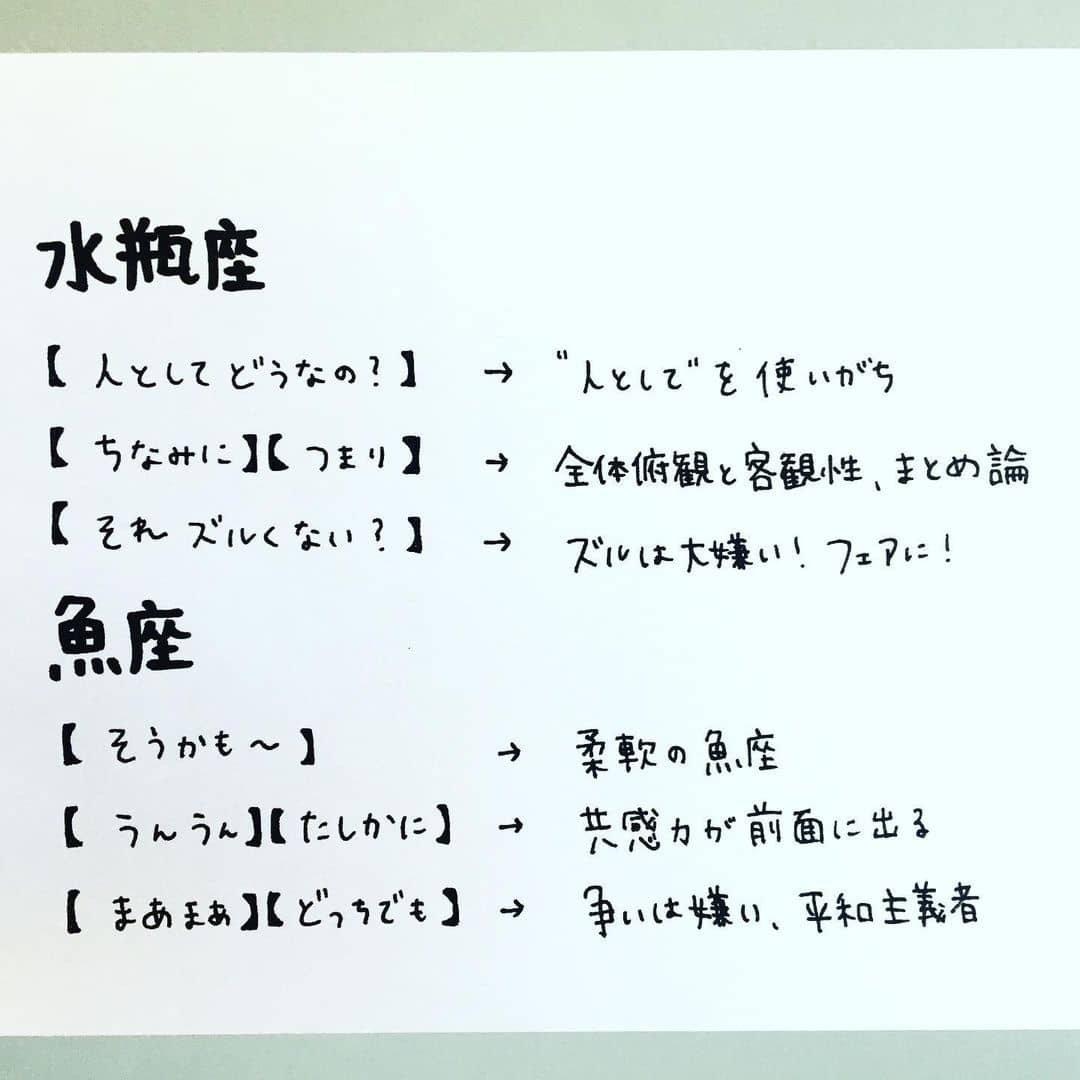 水瓶座
【 人としてどうなの？】 → “人として”を使いがち
【 ちなみに】【 つまり】 → 全体俯観と客観性、まとめ論
【 それズルくない？】 → ズルは大嫌い！フェアに！
魚座
【 そうかも〜 】 → 柔軟の魚座
【 うんうん】【たしかに】 → 共感力が前面に出る
【 まあまぁ】【どっちでも】 → 争いは嫌い、平和主義者